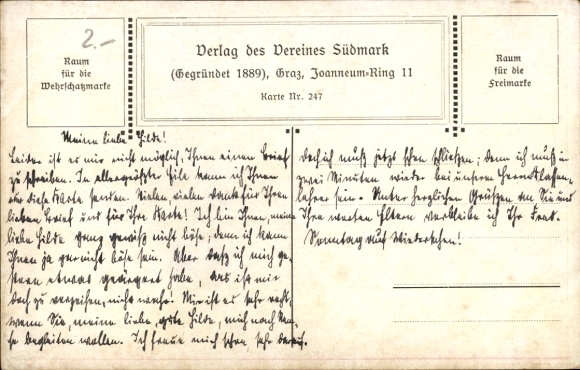 2.-
Raum
für die
Wehrschatzmarke
Verlag des Vereines Südmark
(Gegründet 1889), Graz, Joanneum-Ring 11
Karte Nr. 247
Raum
für die
Freimarke
Meine liebe Hilde!
Leider ist es mir nicht möglich, Ihnen einen Brief
zu schreiben. In allergrößter Eile kann ich Ihnen
nur diese Karte senden. Vielen, vielen Dank für Ihren
lieben Brief und für Ihre Karte! Ich bin Ihnen, meine
liebe Hilde ganz gewiß nicht böse, denn ich kann
Ihnen ja gar nicht böse sein. Aber daß ich mich ge-
stern etwas geärgert habe, das ist mir
doch zu verzeihen, nicht wahr? Mir ist es sehr recht,
wenn Sie, meine liebe, gute Hilde, mich nach Hau-
se begleiten wollen. Ich freue mich schon, sehr darauf.
Doch ich muß jetzt schon schließen; denn ich muß in
zwei Minuten wieder bei unserem
sein. Unter herzlichen Grüßen an Sie und
Ihre werten Eltern verbleibe ich Ihr
Sonntag auf Wiedersehen!